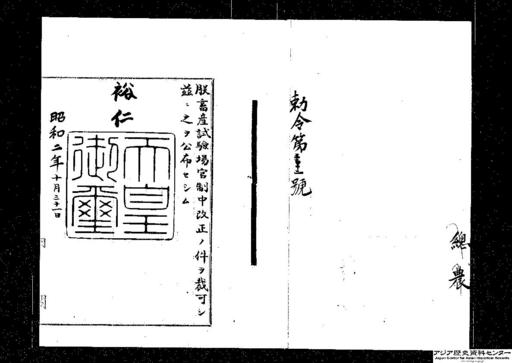 總農
勅令第號
朕畜産試驗場官制中改正ノ件ヲ裁可シ
茲ニ之ヲ公布セシム
裕仁
天皇
御璽
昭和二年十月三十一日
アジア歴史資料センター
Japan Center for Asian Historical Records